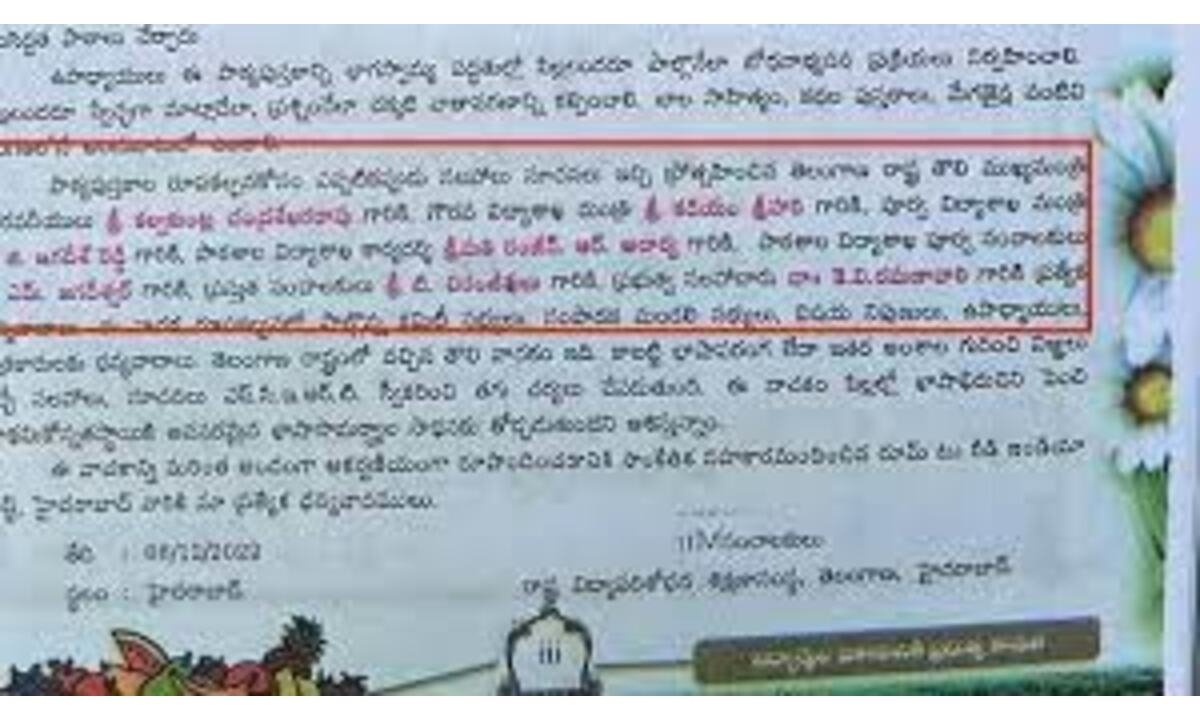 పాఠాలు చేర్చారు.
ఉపాధ్యాయులు ఈ పాఠ్యపుస్తకాన్ని భాగస్వామ్య పద్ధతుల్లో పిల్లలందరూ పాల్గొనేలా బోధనాభ్యసన ప్రక్రియలు నిర్వహించాలి.
స్వేచ్ఛగా మాట్లాడేలా, ప్రశ్నించేలా చక్కటి వాతావరణాన్ని కల్పించాలి. బాల సాహిత్యం, కథల పుస్తకాలు, మేగజైన్ల వంటివి
పాఠ్యపుస్తకాల రూపకల్పనకోసం ఎప్పటికప్పుడు సలహాలు సూచనలు ఇచ్చి ప్రోత్సహించిన తెలంగాణ రాష్ట్ర తొలి ముఖ్యమంత్రి
శ్రీ కల్వకుంట్ల చంద్రశేఖరరావు గారికి, గౌరవ విద్యాశాఖ మంత్రి శ్రీ కడియం శ్రీహరి గారికి, పూర్వ విద్యాశాఖ మంత్రి
జి. జగదీశ్ రెడ్డి గారికి, పాఠశాల విద్యాశాఖ కార్యదర్శి శ్రీమతి రంజీవ్. ఆర్. ఆచార్య గారికి, పాఠశాల విద్యాశాఖ పూర్వ సంచాలకులు
ఎమ్. జగదీశ్వర్ గారికి, ప్రస్తుత సంచాలకులు శ్రీ టి. చిరంజీవులు గారికి, ప్రభుత్వ సలహాదారు డాం కె.వి.రమణాచారి గారికి ప్రత్యేక
పాల్గొన్న కమిటీ సభ్యులు, సంపాదక మండలి సభ్యులు, విషయ నిపుణులు, ఉపాధ్యాయులు,
ధన్యవాదాలు. తెలంగాణ రాష్ట్రంలో వచ్చిన తొలి వాచకం ఇది. కాబట్టి భాషాపరంగ లేదా ఇతర అంశాల గురించి విజ్ఞుల
సలహాలు, సూచనలు ఎస్.సి.ఇ.ఆర్.టి. స్వీకరించి తగు చర్యలు చేపడుతుంది. ఈ వాచకం పిల్లల్లో భాషాభిరుచిని పెంచి
అవసరమైన భాషాసామర్థ్యాల సాధనకు తోడ్పడుతుందని ఆశిస్తున్నాం.
ఈ వాచకాన్ని మరింత అందంగా ఆకర్షణీయంగా రూపొందించడానికి సాంకేతిక సహకారమందించిన రూమ్ టు రీడ్ ఇండియా
హైదరాబాద్ వారికి మా ప్రత్యేక ధన్యవాదములు.
తేది : 08/12/2022
సంచాలకులు
స్థలం : హైదరాబాద్
రాష్ట్ర విద్యాపరిశోధన శిక్షణాసంస్థ, తెలంగాణ, హైదరాబాద్
iii